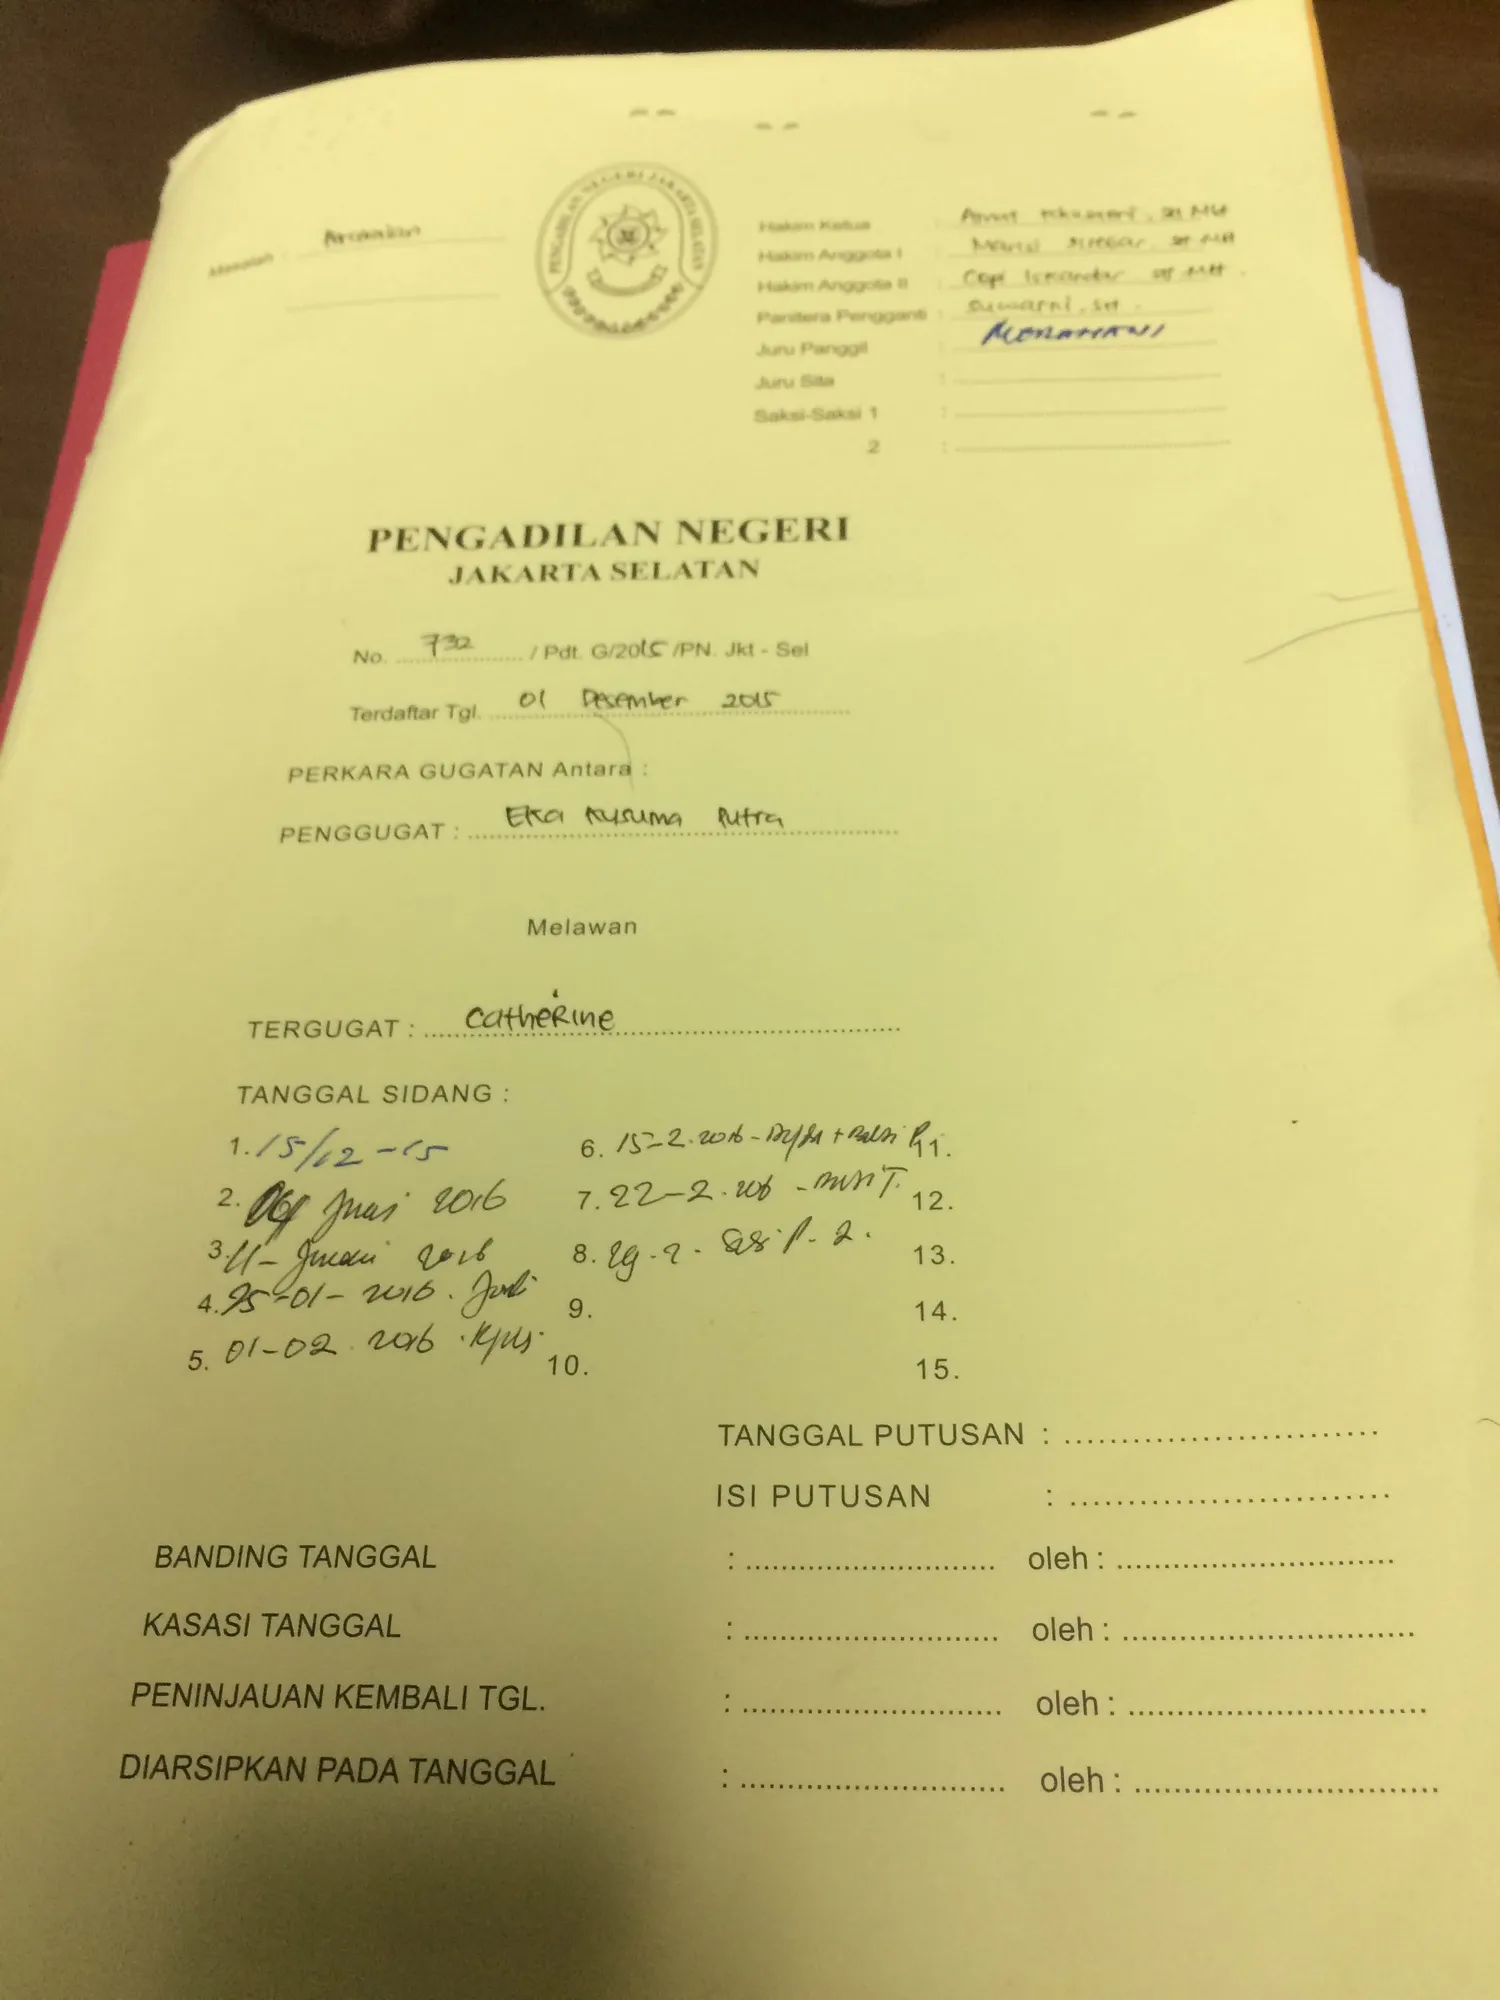 PENGADILAN NEGERI JAKARTA SELATAN
Hakim Ketua :
Hakim Anggota I : Siregar SH MH
Hakim Anggota II : Iskandar SH MH.
Panitera Pengganti : Suwarni, SH.
Juru Panggil :
Juru Sita :
Saksi-Saksi 1 :
2 :
PENGADILAN NEGERI
JAKARTA SELATAN
No. 732 / Pdt. G/2015 /PN. Jkt - Sel
Terdaftar Tgl. 01 Desember 2015
PERKARA GUGATAN Antara :
PENGGUGAT : Eka Kusuma Putra
Melawan
TERGUGAT : Catherine
TANGGAL SIDANG :
1. 15/12-15
2. 2016
3. 11- 2016
4. 25-01-2016.
5. 01-02.2016.
6. 15-2.2016-
7. 22-2.2016 - T.
8. 29.2. P.2.
9.
10.
11.
12.
13.
14.
15.
TANGGAL PUTUSAN :
ISI PUTUSAN :
BANDING TANGGAL : oleh :
KASASI TANGGAL : oleh :
PENINJAUAN KEMBALI TGL. : oleh :
DIARSIPKAN PADA TANGGAL : oleh :